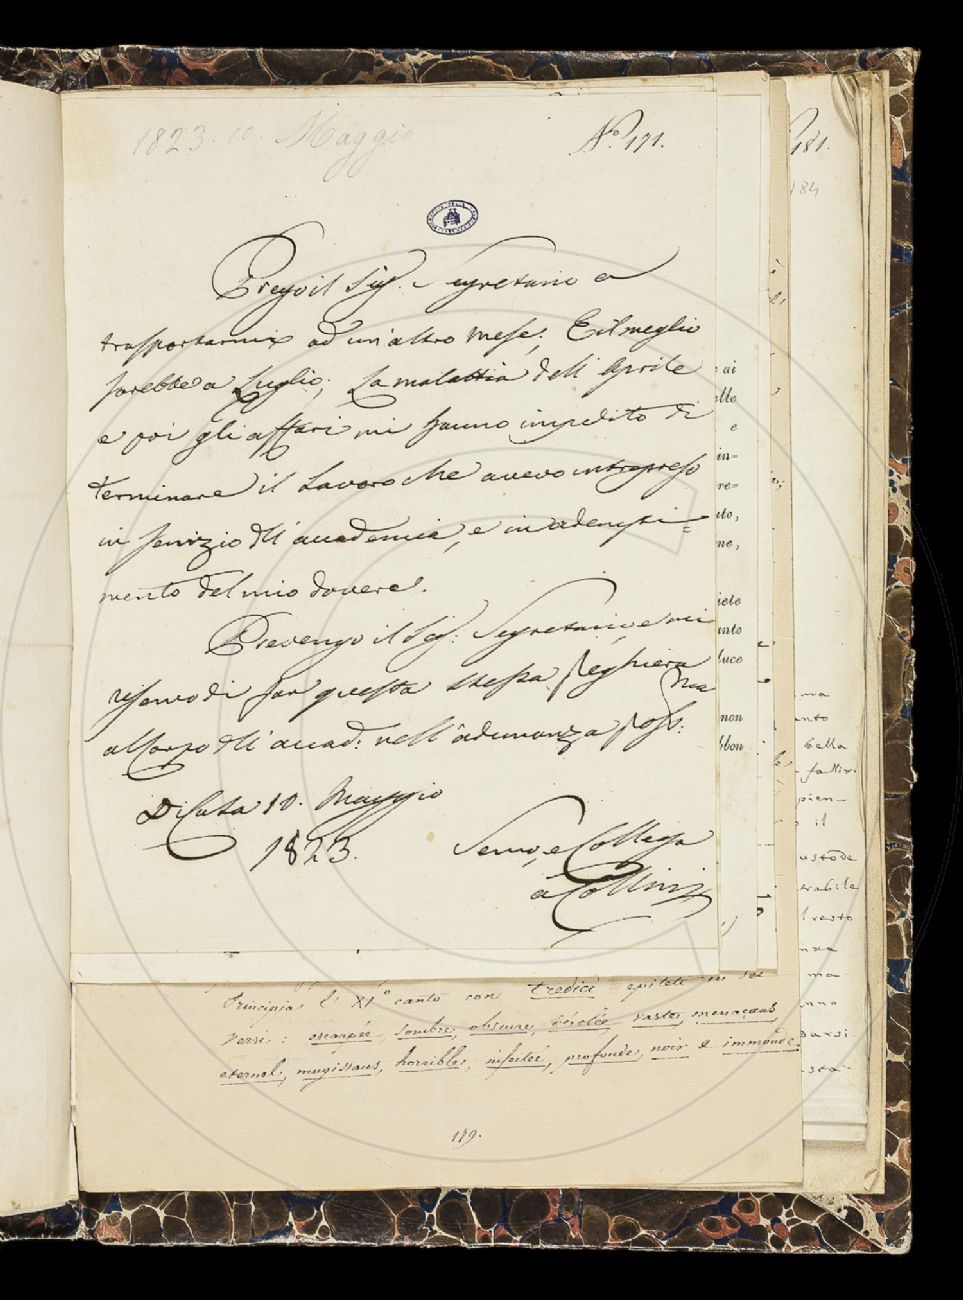 1823. 10. Maggio
N.° 171.
Prego il Sig. Segretario a
trasportarmi ad un'altro mese; E il meglio
sarebbe a Luglio; La malattia dell'Aprile
e poi gli affari mi hanno impedito di
terminare il Lavoro che avevo intrapreso
in servizio dell'accademia, e in adempi=
mento del mio dovere.
Prevengo il Sig: Segretario, e mi
riservo di far questa stessa preghiera
al Corpo dell'accad: nell'adunanza pross:ma
Di Casa 10. Maggio
1823.
Servo, e Collega
a Collini
181.
184
ai
elle
e
in=
re=
ne,
nto
luce
non
bbon
ma
anto
bella
pien-
il
ustode
trabile
l resto
ma
anno
Principia l'XI° canto con tredici epiteti in sei
versi: escarpée, sombre, obscure, vaste, menaçant,
eternal, mugissans, horribles, infectée, profonde, noir e immonde.
119.